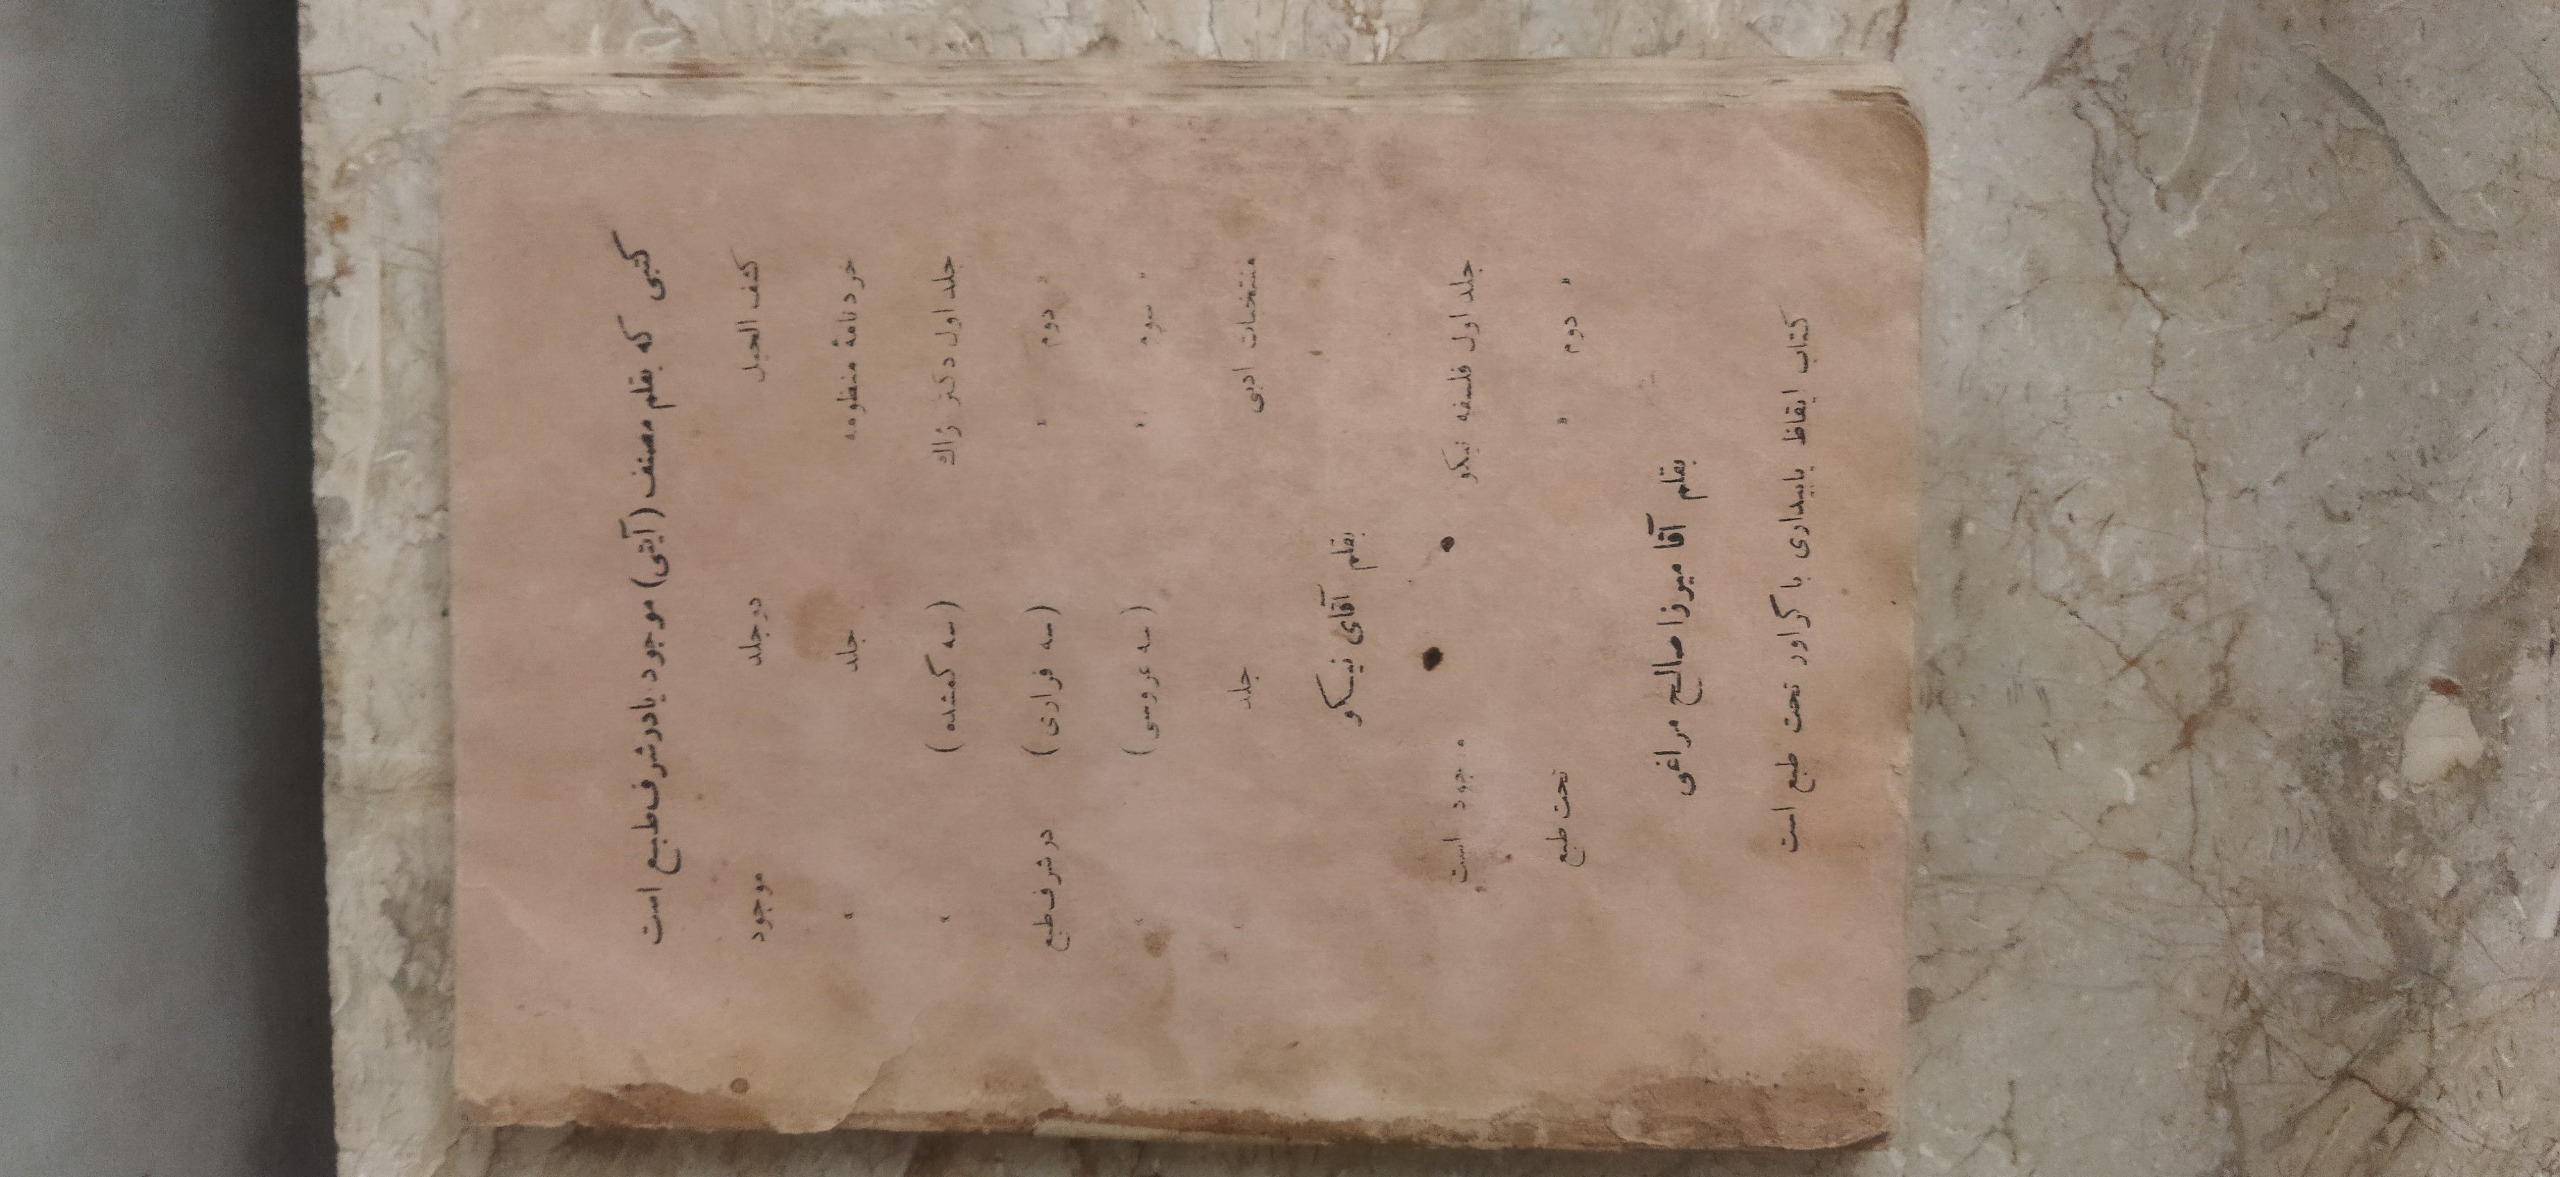 کتبی که بقلم مصنف (آیتی) موجود یا در شرف طبع است
کشف الحیل دو جلد موجود
خرد نامهٔ منظومه جلد "
جلد اول دکتر ژاک (سه گمشده) "
" دوم " (سه فراری) در شرف طبع
" سوم " (سه عروسی) "
منتخبات ادبی جلد "
بقلم آقای نیکو
جلد اول فلسفه نیکو موجود است
" دوم " تحت طبع
بقلم آقا میرزا صالح مراغی
کتاب ایقاظ یا بیداری با گراور تحت طبع است